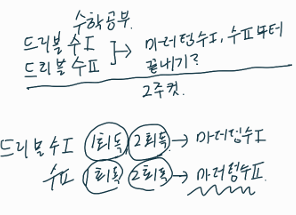 수학공부.
드리블 수I
드리블 수II → 마더텅수I, 수II부터 끝내기?
2주컷.
드리블 수I 1회독 2회독 → 마더텅수I
수II 1회독 2회독 → 마더텅수II.